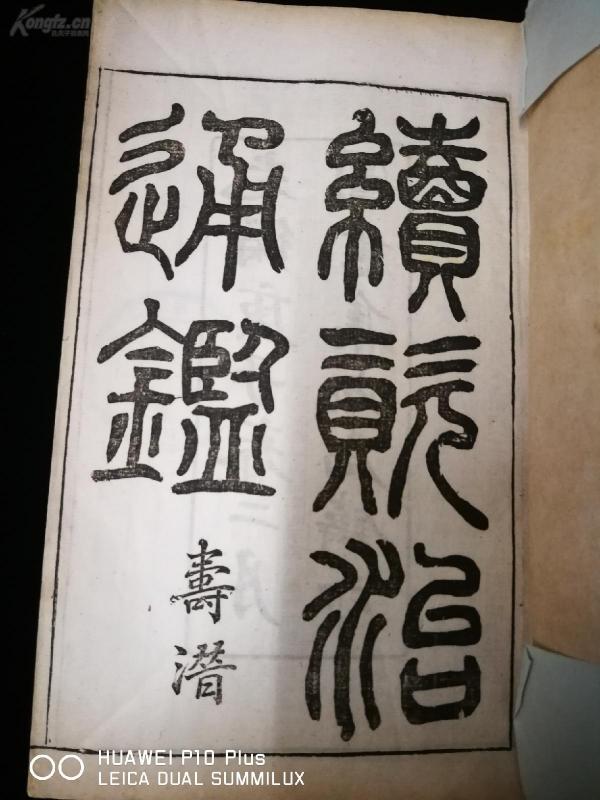 續資治
通鑑
壽潛
Kongfz.cn
HUAWEI P10 Plus
LEICA DUAL SUMMILUX